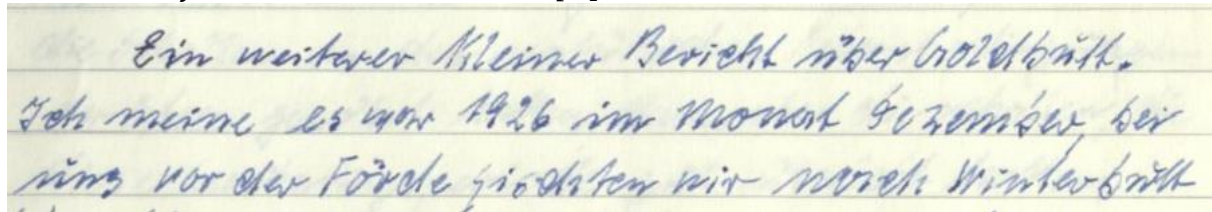 Ein weiterer kleiner Bericht über Goldbutt.
Ich meine es war 1926 im Monat Dezember, bei
uns vor der Förde fischten wir nach Winterbutt